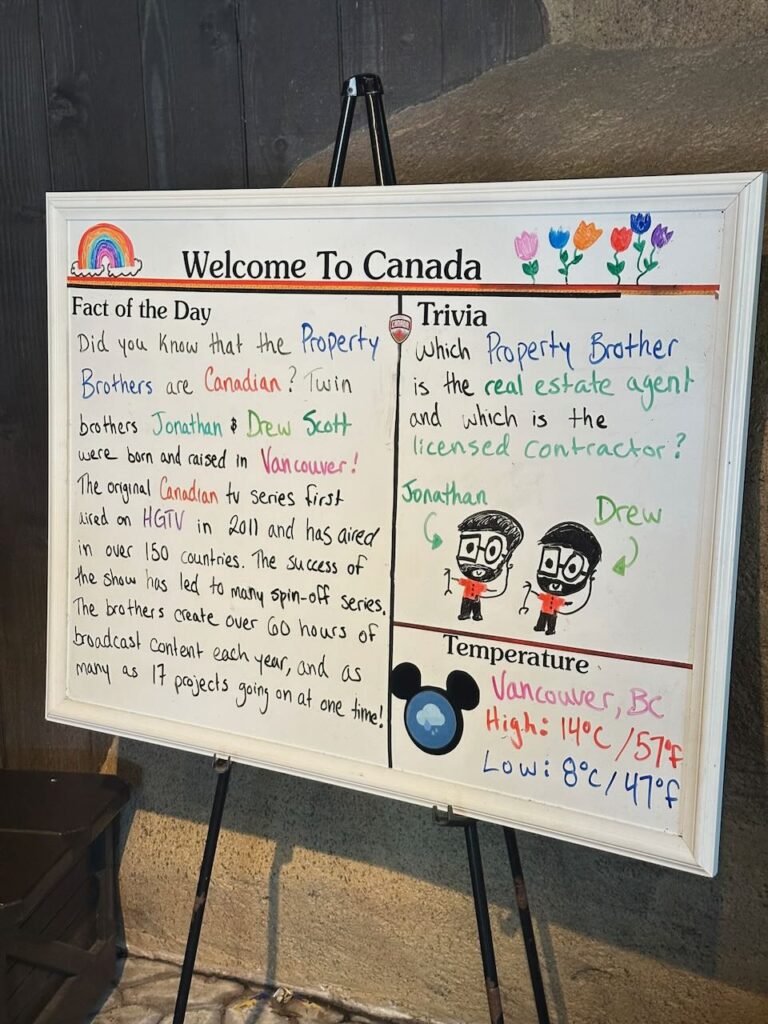 Welcome To Canada
Fact of the Day
Did you know that the Property
Brothers are Canadian? Twin
brothers Jonathan & Drew Scott
were born and raised in Vancouver!
The original Canadian tv series first
aired on HGTV in 2011 and has aired
in over 150 countries. The success of
the show has led to many spin-off series.
The brothers create over 60 hours of
broadcast content each year, and as
many as 17 projects going on at one time!
CANADA
Trivia
Which Property Brother
is the real estate agent
and which is the
licensed contractor?
Jonathan
Drew
Temperature
Vancouver, BC
High: 14°C/57°F
Low: 8°C/47°F